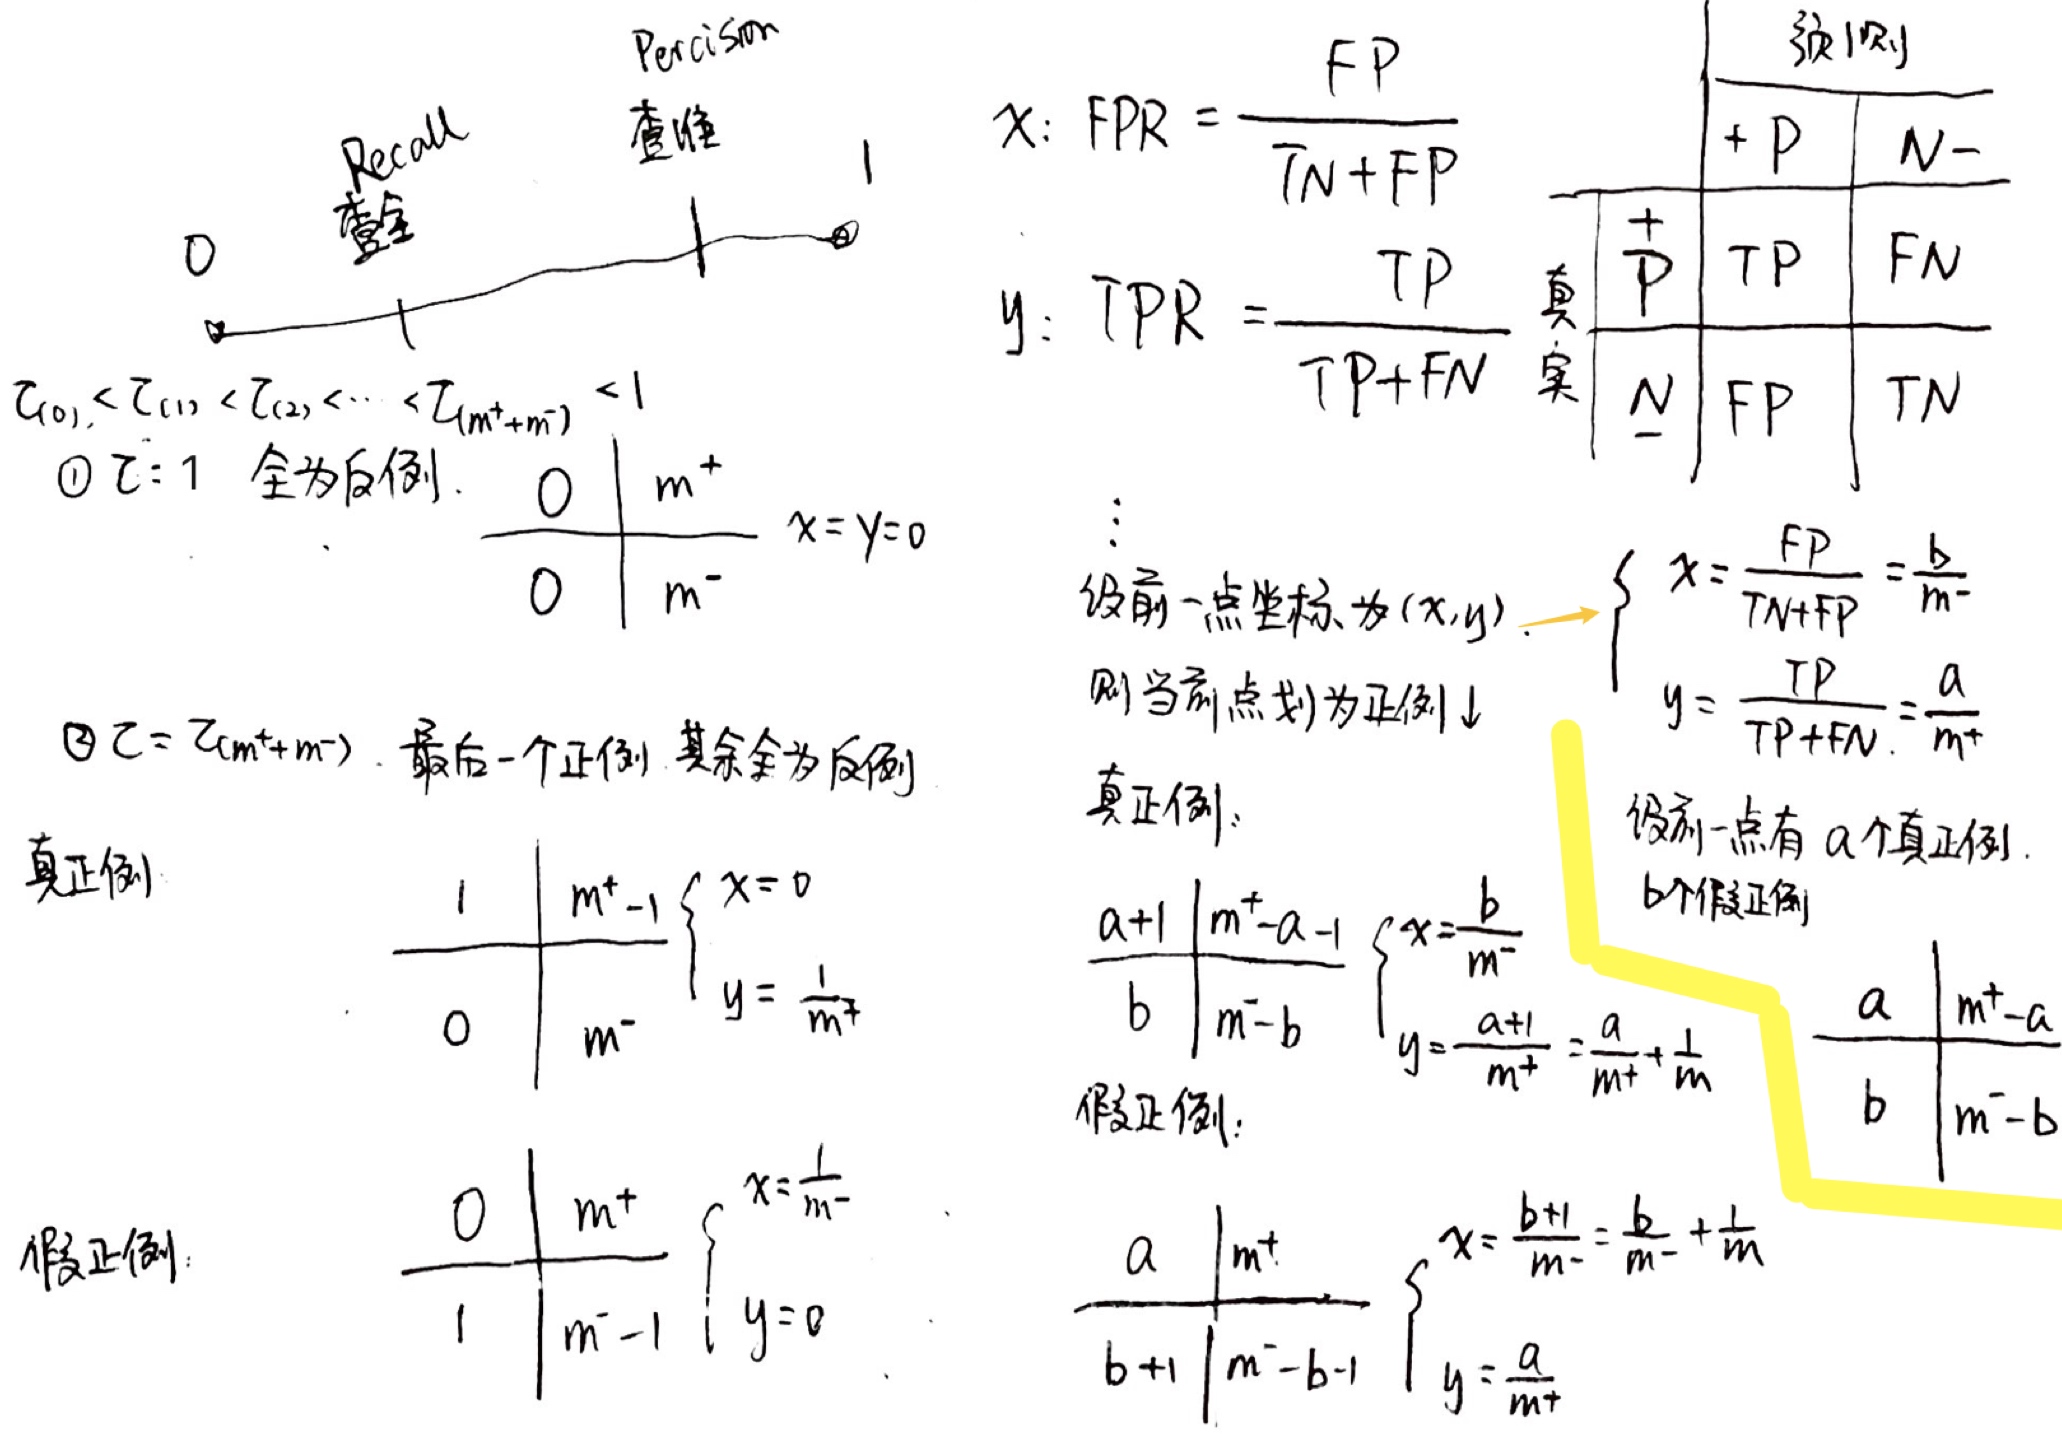 Percision
查准
Recall
查全
0
1
τ(0) < τ(1) < τ(2) < ⋯ < τ(m⁺+m⁻) < 1
① τ: 1 全为反例.
0 | m⁺
0 | m⁻
x = y = 0
② τ = τ(m⁺+m⁻). 最后一个正例 其余全为反例
真正例
1 | m⁺-1
0 | m⁻
{ x = 0
y = 1/m⁺
假正例:
0 | m⁺
1 | m⁻-1
{ x = 1/m⁻
y = 0
x: FPR = FP/(TN+FP)
y: TPR = TP/(TP+FN)
预测
+ P | N -
真实
+ P | TP | FN
N - | FP | TN
⋮
设前一点坐标为(x,y).
→ { x = FP/(TN+FP) = b/m⁻
y = TP/(TP+FN) = a/m⁺
则当前点划为正例↓
设前一点有 a个真正例.
b个假正例
a | m⁺-a
b | m⁻-b
真正例:
a+1 | m⁺-a-1
b | m⁻-b
{ x = b/m⁻
y = (a+1)/m⁺ = a/m⁺ + 1/m
假正例:
a | m⁺
b+1 | m⁻-b-1
{ x = (b+1)/m⁻ = b/m⁻ + 1/m
y = a/m⁺